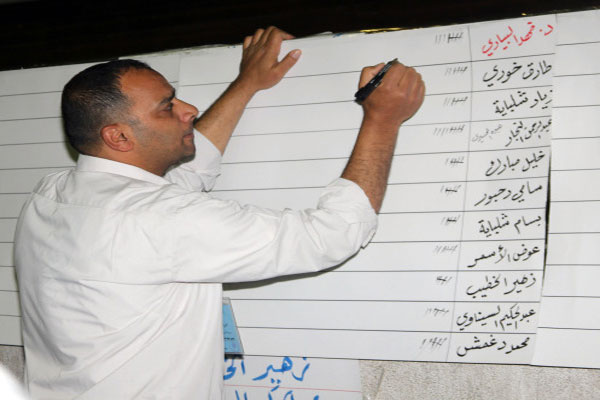 د. فهد البياري
طارق خوري
زياد شلباية
عبدالرحمن النجار
خليل مبارك
سامي دحبور
بسام شلباية
عوض الأسمر
زهير الخطيب
عبدالحكيم السيناوي
محمود دغمش
زهير